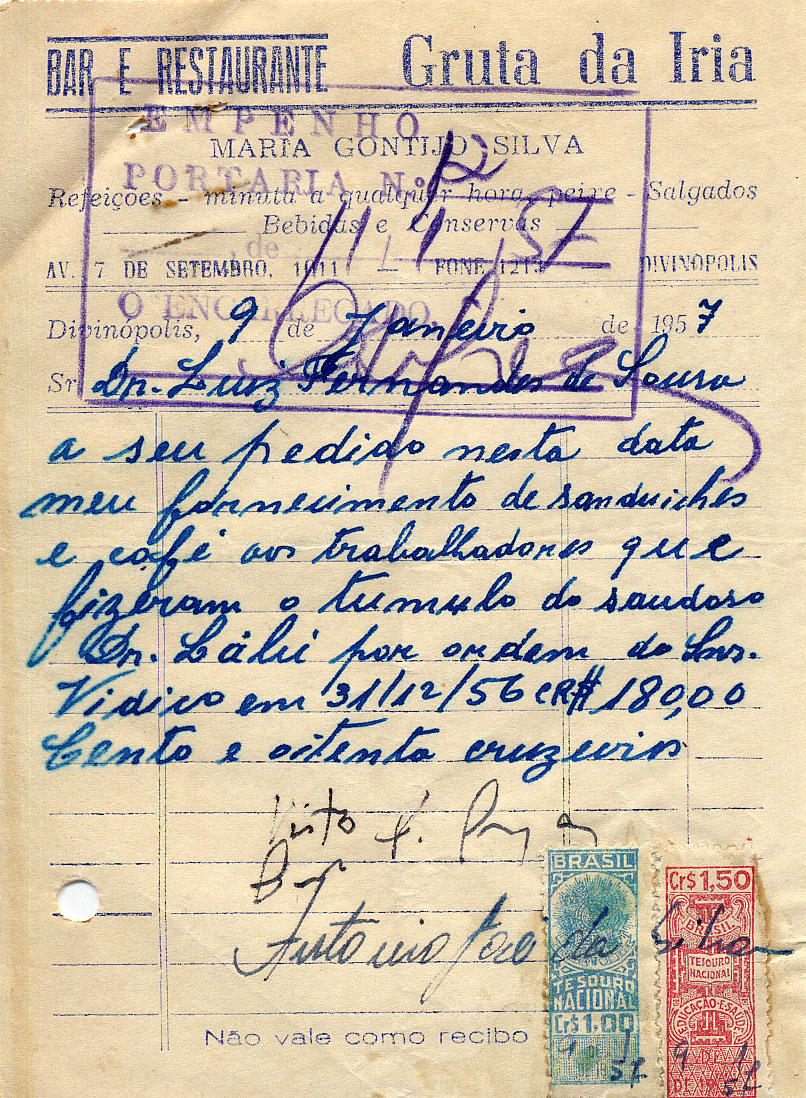 BAR E RESTAURANTE Gruta da Iria
EMPENHO
MARIA GONTIJO SILVA
PORTARIA N.º 12
Refeições - minuta a qualquer hora, peixe - Salgados
Bebidas e Conservas
11 1 57
de
AV. 7 DE SETEMBRO, 1011 — FONE, 1213 DIVINÓPOLIS
O ENCARREGADO,
Divinópolis, 9 de Janeiro de 1957
Sr. Dr. Luiz Fernandes de Sousa
a seu pedido nesta data
meu fornecimento de sanduiches
e café aos trabalhadores que
fizeram o tumulo do saudoso
Dr. Lálú por ordem do Snr.
Vidico em 31/12/56 CR$ 180,00
Cento e oitenta cruzeiros
Visto
Antonio José da Silva
BRASIL
TESOURO
NACIONAL
Cr$ 1,00
9 1
57
Cr$ 1,50
BRASIL
TESOURO
NACIONAL
EDUCAÇÃO E SAUDE
9 DE 1
DE 19 57
Não vale como recibo